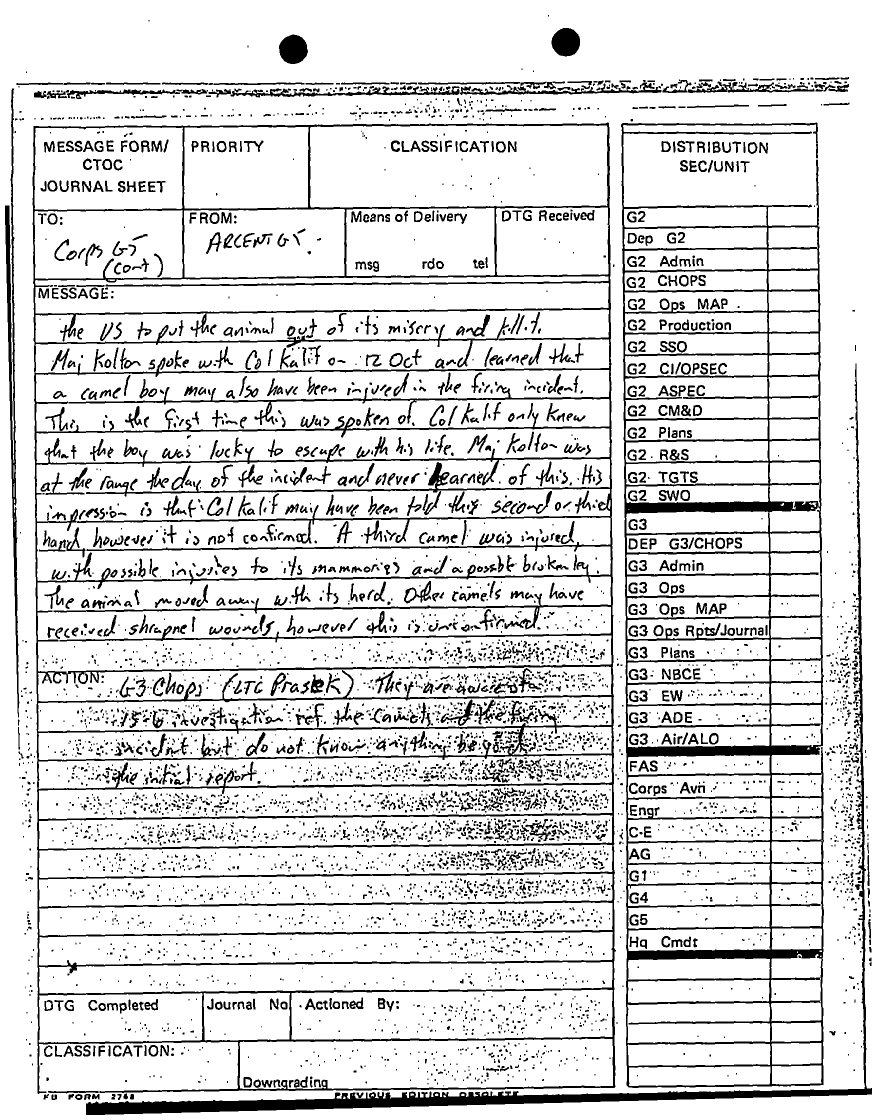 MESSAGE FORM/
CTOC
JOURNAL SHEET
PRIORITY
CLASSIFICATION
TO:
Corps G5
(cont)
FROM:
ARCENT G5.
Means of Delivery
msg rdo tel
DTG Received
MESSAGE:
the US to put the animal out of its misery and kill it.
Maj Kolton spoke with Col Kalif on 12 Oct and learned that
a camel boy may also have been injured in the firing incident.
This is the first time this was spoken of. Col Kalif only knew
that the boy was lucky to escape with his life. Maj Kolton was
at the range the day of the incident and never learned of this. His
impression is that Col Kalif may have been told this second or third
hand, however it is not confirmed. A third camel was injured,
with possible injuries to its mammories and a possble broken leg.
The animal moved away with its herd. Other camels may have
received shrapnel wounds, however this is unconfirmed.
ACTION: G3 Chops (LTC Prasek) They are aware of
15-6 investigation ref. the camels and the firing
incident but do not know anything beyond
the initial report.
DTG Completed
Journal No
Actioned By:
CLASSIFICATION:
Downgrading
FB FORM 2768
PREVIOUS EDITION OBSOLETE
DISTRIBUTION
SEC/UNIT
G2
Dep G2
G2 Admin
G2 CHOPS
G2 Ops MAP
G2 Production
G2 SSO
G2 CI/OPSEC
G2 ASPEC
G2 CM&D
G2 Plans
G2 R&S
G2 TGTS
G2 SWO
G3
DEP G3/CHOPS
G3 Admin
G3 Ops
G3 Ops MAP
G3 Ops Rpts/Journal
G3 Plans
G3 NBCE
G3 EW
G3 ADE
G3 Air/ALO
FAS
Corps Avn
Engr
C-E
AG
G1
G4
G5
Hq Cmdt